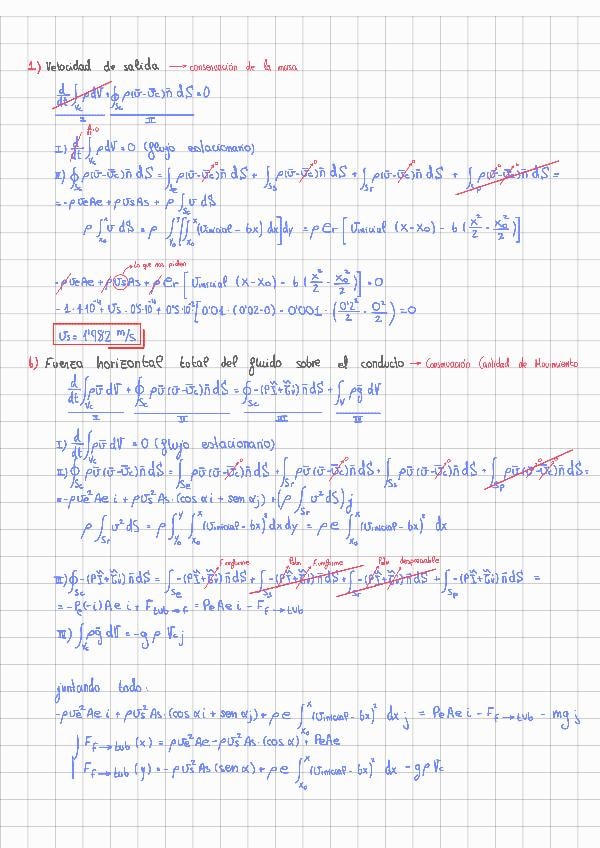 1) Velocidad de salida → conservación de la masa
d/dt ∫_Vc ρdV + ∮_Sc ρ(v̄-v̄c)n̄ dS = 0
I II
I) d/dt ∫_Vc ρdV = 0 (flujo estacionario)
II) ∮_Sc ρ(v̄-v̄c)n̄ dS = ∫_Se ρ(v̄-v̄c)n̄ dS + ∫_Ss ρ(v̄-v̄c)n̄ dS + ∫_Sr ρ(v̄-v̄c)n̄ dS + ∫_Sp ρ(v̄-v̄c)n̄ dS =
= -ρveAe + ρvsAs + ρ ∫_Sr v dS
lo que nos piden
-ρveAe + ρvsAs + ρ er [vinicial (x-x0) - b (x²/2 - x0²/2)] = 0
vs = 1'982 m/s
b) Fuerza horizontal total del fluido sobre el conducto → Conservación Cantidad de Movimiento
d/dt ∫_Vc ρv̄ dV + ∮_Sc ρv̄(v̄-v̄c)n̄ dS = ∮_Sc -(PĪ+τ̄)n̄ dS + ∫_V ρḡ dV
I II III IV
I) d/dt ∫_Vc ρv̄ dV = 0 (flujo estacionario)
II) ∮_Sc ρv̄(v̄-v̄c)n̄ dS = ∫_Se ρv̄(v̄-v̄c)n̄ dS + ∫_Sr ρv̄(v̄-v̄c)n̄ dS + ∫_Ss ρv̄(v̄-v̄c)n̄ dS + ∫_Sp ρv̄(v̄-v̄c)n̄ dS =
= -ρve²Ae i + ρvs²As·(cos α i + sen α j) + (ρ ∫_Sr v² dS) j
ρ ∫_Sr v² dS = ρ ∫_y0^y ∫_x0^x (vinicial - bx)² dx dy = ρ e ∫_x0^x (vinicial - bx)² dx
F. uniforme Patm F. uniforme Patm despreciable
III) ∮_Sc -(PĪ+τ̄)n̄ dS = ∫_Se -(PĪ+τ̄)n̄ dS + ∫_Ss -(PĪ+τ̄)n̄ dS + ∫_Sr -(PĪ+τ̄)n̄ dS + ∫_Sp -(PĪ+τ̄)n̄ dS =
= -Pe(-i)Ae i + F tub→f = PeAe i - F f→tub
IV) ∫_Vc ρḡ dV = -g ρ Vc j
juntando todo:
-ρve²Ae i + ρvs²As·(cos α i + sen α j) + ρ e ∫_x0^x (vinicial - bx)² dx j = PeAe i - F f→tub - mg j
F f→tub (x) = ρve²Ae - ρvs²As·(cos α) + PeAe
F f→tub (y) = -ρvs²As (sen α) + ρ e ∫_x0^x (vinicial - bx)² dx - gρVc